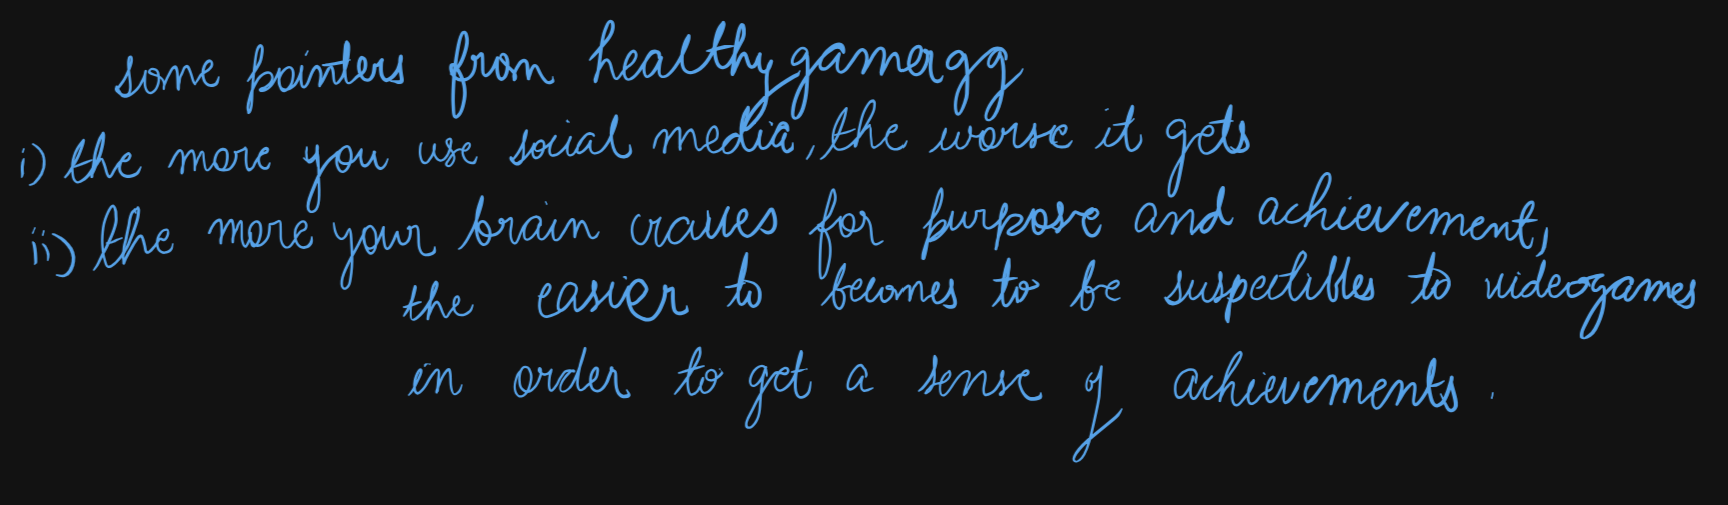 some pointers from healthygamergg
i) the more you use social media, the worse it gets
ii) the more your brain craves for purpose and achievement,
the easier to becomes to be suspectibles to videogames
in order to get a sense of achievements.